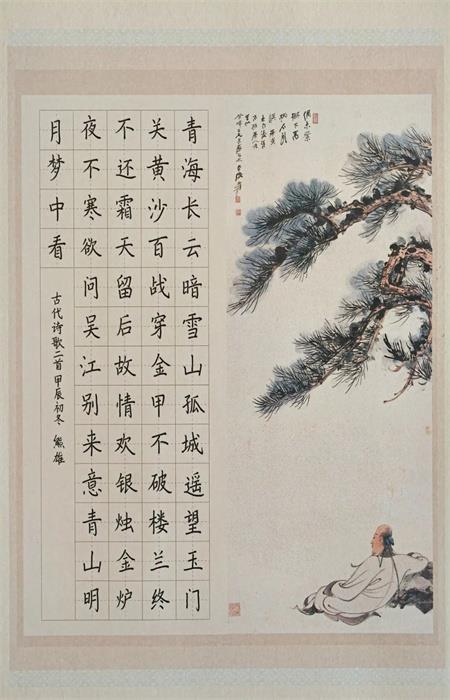 青海长云暗雪山孤城遥望玉门
关黄沙百战穿金甲不破楼兰终
不还霜天留后故情欢银烛金炉
夜不寒欲问吴江别来意青山明
月梦中看
古代诗歌二首甲辰初冬熊雄